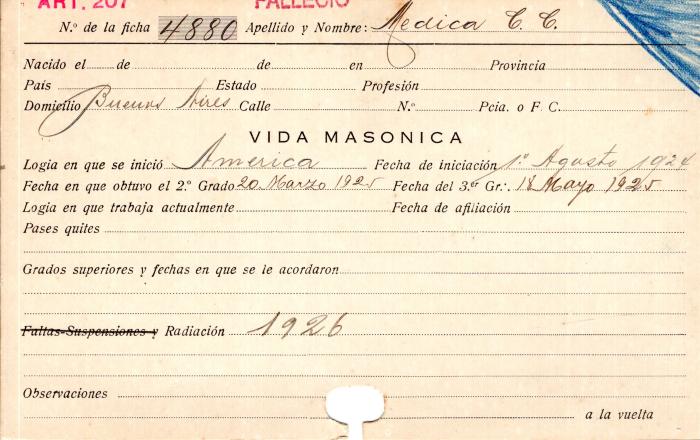 ART. 207 FALLECIO
N.º de la ficha 4880 Apellido y Nombre: Medica C. C.
Nacido el de de en Provincia
País Estado Profesión
Domicilio Buenos Aires Calle N.º Pcia. o F C.
VIDA MASONICA
Logia en que se inició America Fecha de iniciación 1º Agosto 1924
Fecha en que obtuvo el 2.º Grado 20 Marzo 1925 Fecha del 3.er Gr.: 18 Mayo 1925
Logia en que trabaja actualmente Fecha de afiliación
Pases quites
Grados superiores y fechas en que se le acordaron
Faltas-Suspensiones y Radiación 1926
Observaciones
a la vuelta